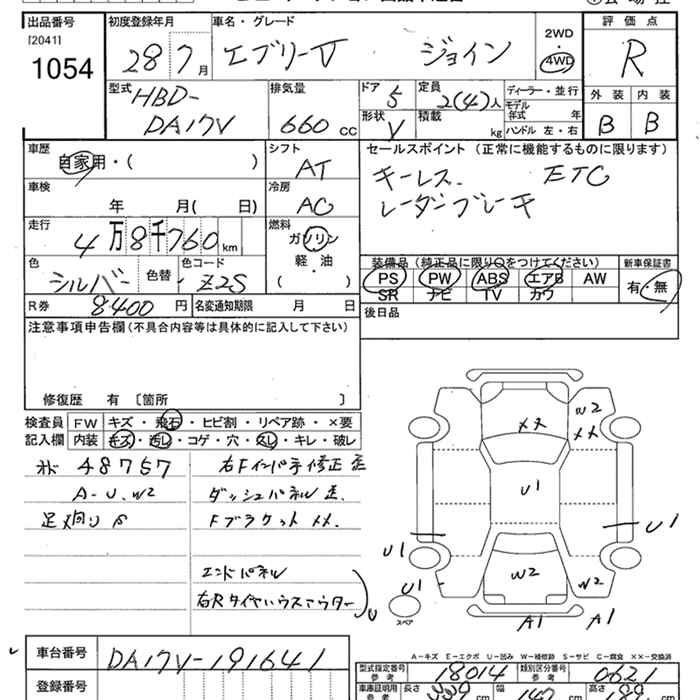 出品番号 初度登録年月 車名・グレード 評価点
[2041]
1054 28 7月 エブリーV ジョイン 2WD 4WD R
型式 排気量 ドア 定員 ディーラー・並行 外装 内装
HBD- 5 2(4)人 モデル年式 年 B B
DA17V 660 CC 形状 V 積載 kg ハンドル 左・右
車歴 シフト セールスポイント (正常に機能するものに限ります)
自家用・( ) AT キーレス. ETC
車検 冷房 レーダーブレーキ
年 月( 日) AC
走行 燃料
4万8千760km ガソリン
軽・油
( )
装備品(純正品に限り○をつけてください) 新車保証書
色 シルバー 色替 色コード Z2S PS PW ABS エアB AW 有・無
SR ナビ TV カワ
R券 8400円 名変通知期限 月 日 後日品
注意事項申告欄(不具合内容等は具体的に記入して下さい)
修復歴 有 〔箇所 〕
検査員 FW キズ・飛石・ヒビ割・リペア跡・×要
記入欄 内装 キズ・汚レ・コゲ・穴・スレ・キレ・破レ
48757 右Fインパネ修正 走
A-U.W2 ダッシュパネル 走.
Fブラケット メメ.
エンドパネル
右Rタイヤハウスアウター U
メメ W2
メメ
U1
U1
U1
U1
W2 W2
スペア A1 A1
A-キズ E-エクボ U-凹み W-補修跡 S-サビ C-腐食 ××-交換済
車台番号 DA17V-191641 型式指定番号 参考 18014 類別区分番号 参考 0621
登録番号 車庫証明用 参考 長さ cm 幅 cm 高さ cm